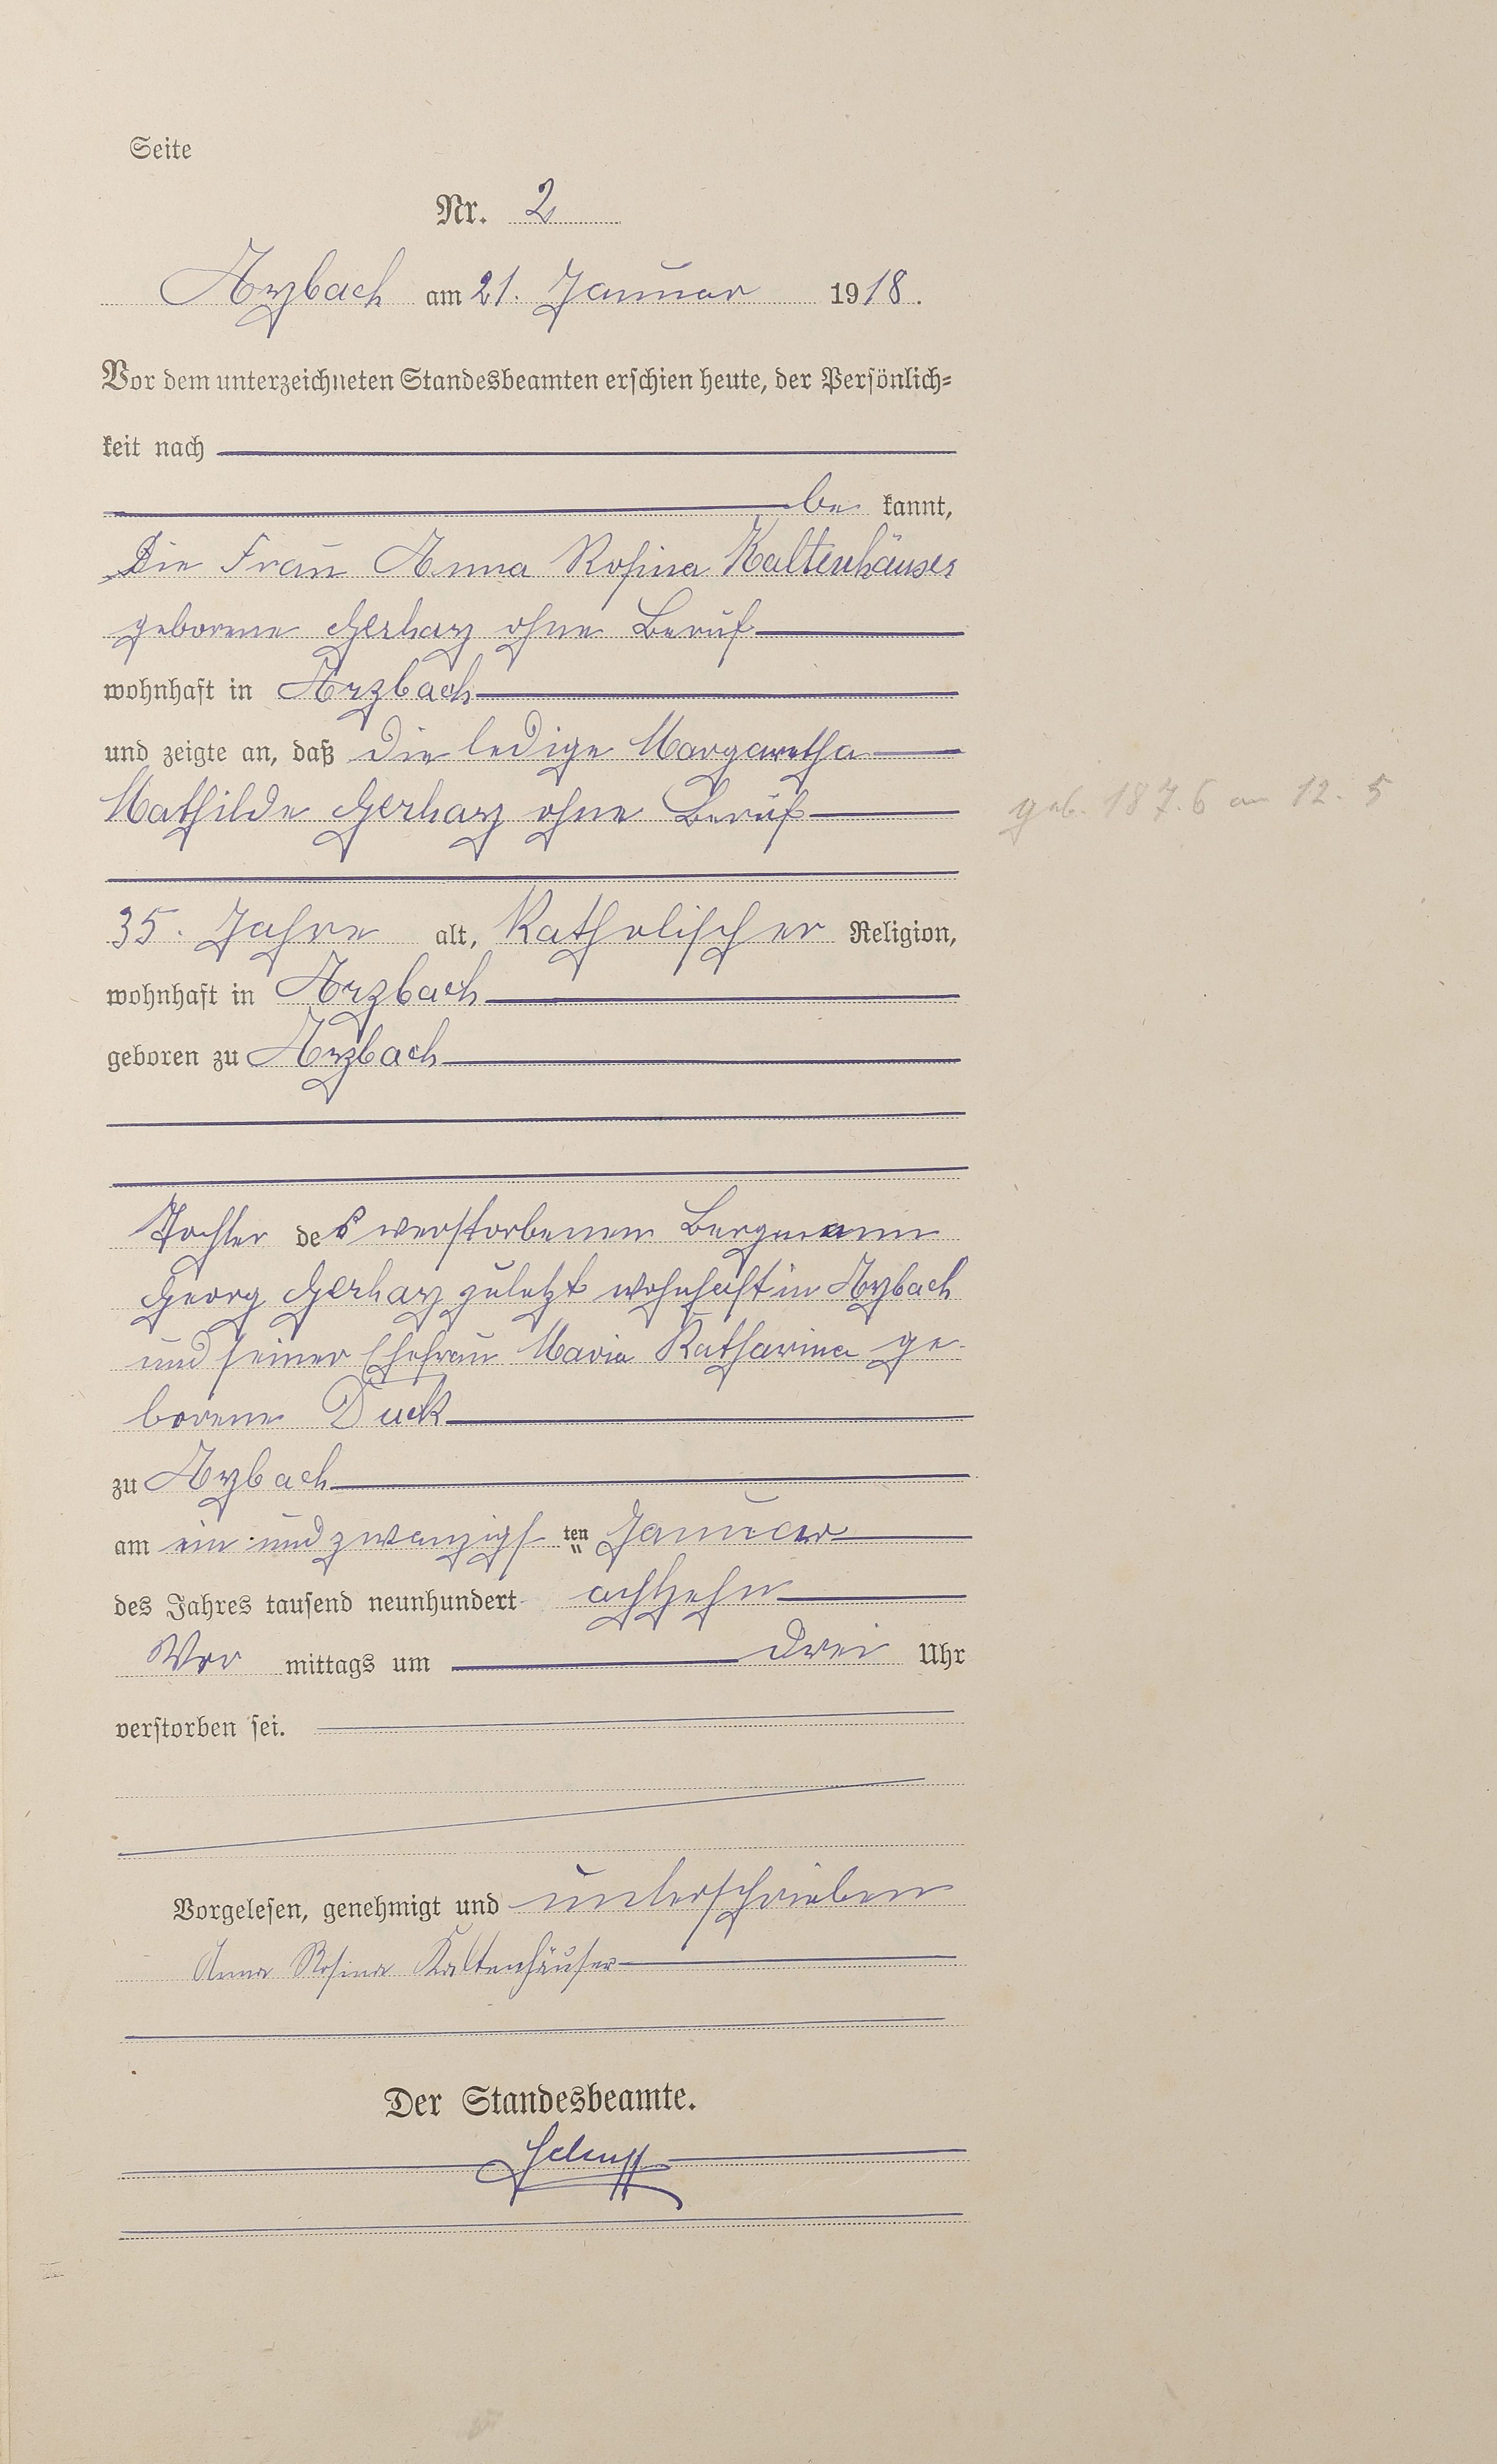 Seite
Nr. 2
Arzbach am 21. Januar 1918.
Vor dem unterzeichneten Standesbeamten erschien heute, der Persönlich-
keit nach
be kannt,
Die Frau Anna Rosina Kaltenhäuser
geborene Gerharz ohne Beruf
wohnhaft in Arzbach
und zeigte an, daß die ledige Margaretha
Mathilde Gerharz ohne Beruf
geb. 187.6 am 12. 5
35. Jahre alt, Katholischer Religion,
wohnhaft in Arzbach
geboren zu Arzbach
Tochter des verstorbenen Bergmann
Georg Gerharz zuletzt wohnhaft in Arzbach
und seiner Ehefrau Maria Katharina ge-
borene Duck
zu Arzbach
am ein und zwanzigs ten Januar
des Jahres tausend neunhundert achtzehn
Vor mittags um drei Uhr
verstorben sei.
Vorgelesen, genehmigt und unterschrieben
Anna Rosina Kaltenhäuser
Der Standesbeamte.